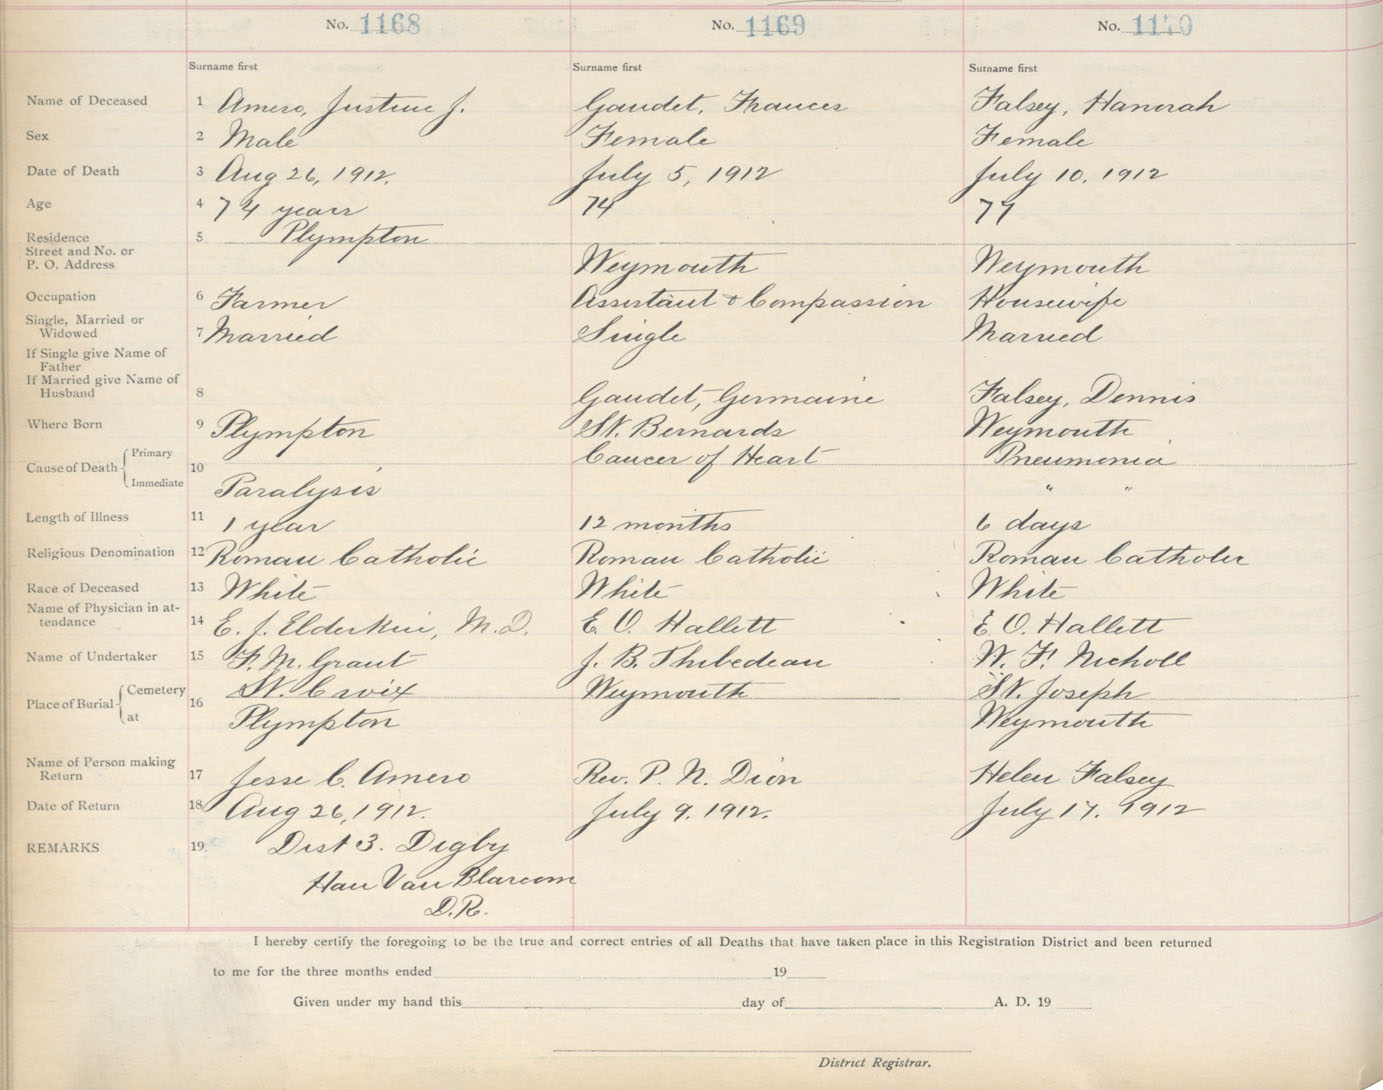 No. 1168 No. 1169 No. 1170
Surname first Surname first Surname first
Name of Deceased 1 Amero, Justine J. Gaudet, Frances Falsey, Hanorah
Sex 2 Male Female Female
Date of Death 3 Aug 26, 1912. July 5, 1912 July 10, 1912
Age 4 74 years 74 77
Residence 5 Plympton
Street and No. or
P. O. Address Weymouth Weymouth
Occupation 6 Farmer Assistant & Compassion Housewife
Single, Married or
Widowed 7 Married Single Married
If Single give Name of
Father
If Married give Name of
Husband 8 Gaudet, Germaine Falsey, Dennis
Where Born 9 Plympton St. Bernards Weymouth
Primary Cancer of Heart Pneumonia
Cause of Death 10
Immediate Paralysis " "
Length of Illness 11 1 year 12 months 6 days
Religious Denomination 12 Roman Catholic Roman Catholic Roman Catholic
Race of Deceased 13 White White White
Name of Physician in at-
tendance 14 E. J. Elderkin, M.D. E. O. Hallett E. O. Hallett
Name of Undertaker 15 F. M. Grant J. B. Thibedeau W. F. Nicholl
Cemetery St. Croix Weymouth St. Joseph
Place of Burial 16
at Plympton Weymouth
Name of Person making
Return 17 Jesse C. Amero Rev. P. N. Dion Helen Falsey
Date of Return 18 Aug 26, 1912. July 9, 1912. July 17, 1912
REMARKS 19 Dist 3. Digby
Han Van Blarcom
D.R.
I hereby certify the foregoing to be the true and correct entries of all Deaths that have taken place in this Registration District and been returned
to me for the three months ended 19
Given under my hand this day of A. D. 19
District Registrar.